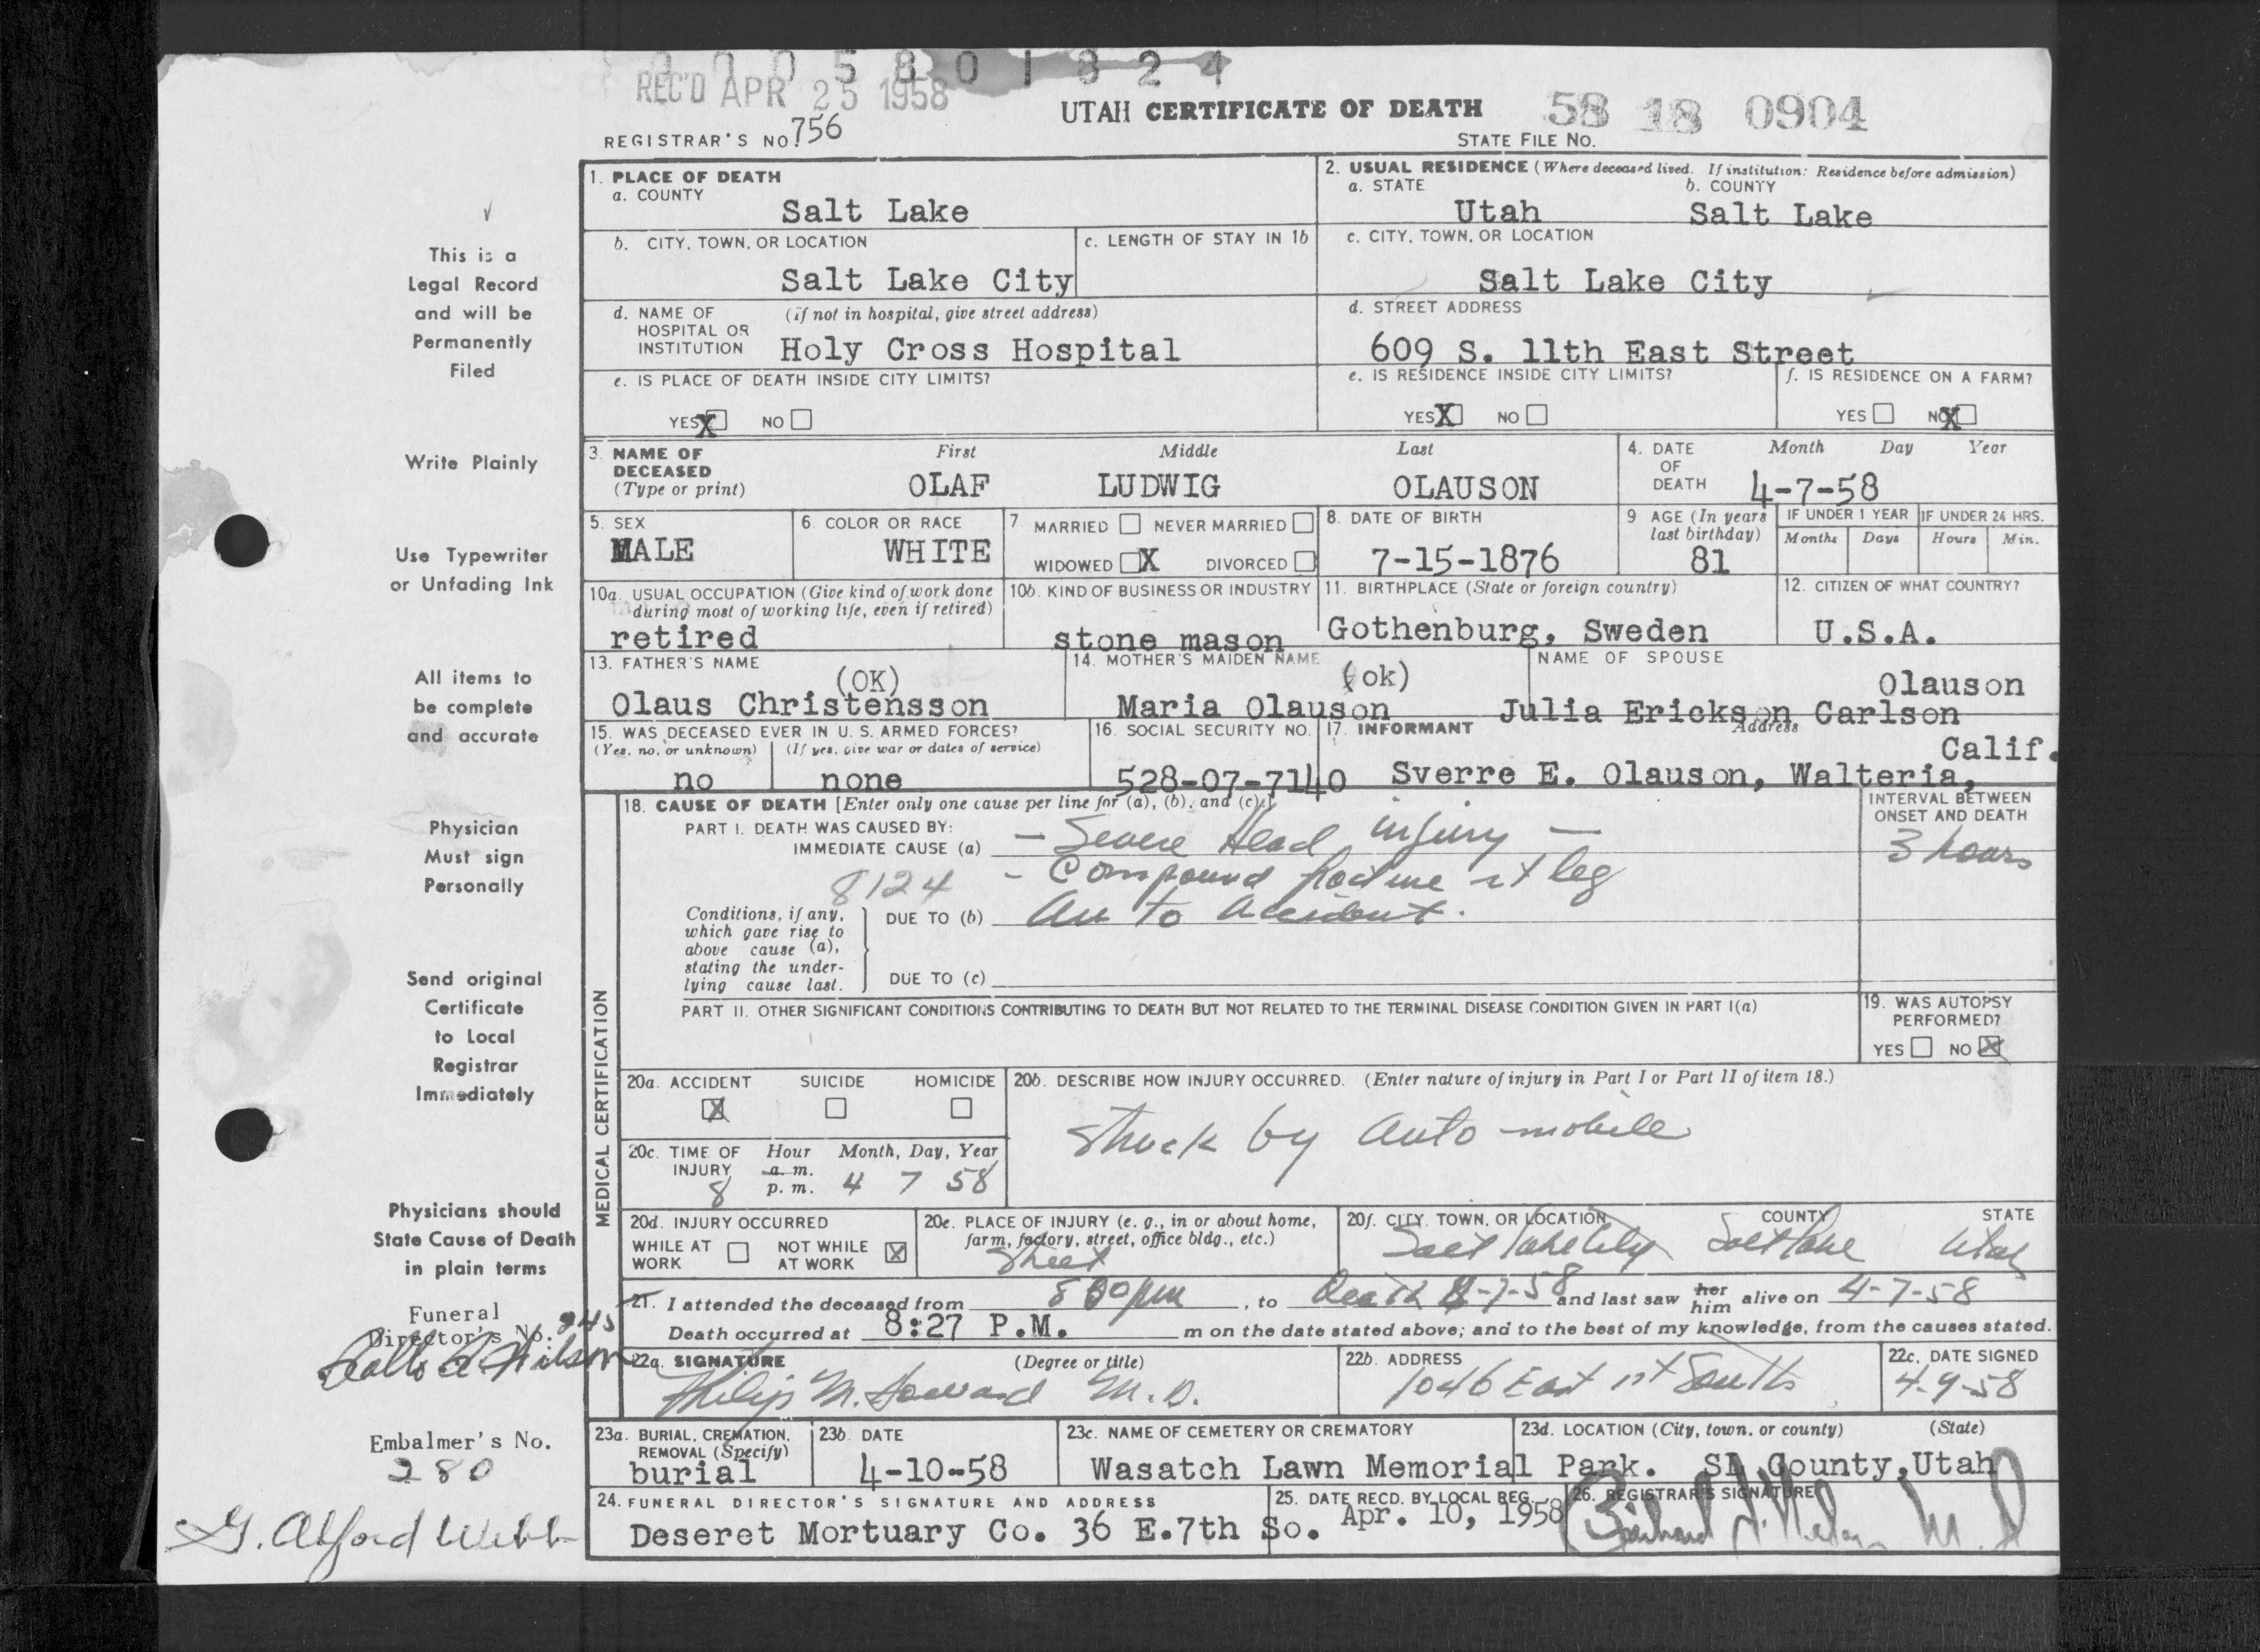 0005801824
REC'D APR 25 1958
UTAH CERTIFICATE OF DEATH 58 18 0904
REGISTRAR'S NO. 756 STATE FILE NO.
1. PLACE OF DEATH
a. COUNTY
Salt Lake
2. USUAL RESIDENCE (Where deceased lived. If institution: Residence before admission)
a. STATE b. COUNTY
Utah Salt Lake
b. CITY, TOWN, OR LOCATION
Salt Lake City
c. LENGTH OF STAY IN 1b
c. CITY, TOWN, OR LOCATION
Salt Lake City
d. NAME OF HOSPITAL OR INSTITUTION (if not in hospital, give street address)
Holy Cross Hospital
d. STREET ADDRESS
609 S. 11th East Street
e. IS PLACE OF DEATH INSIDE CITY LIMITS?
YES X NO
e. IS RESIDENCE INSIDE CITY LIMITS?
YES X NO
f. IS RESIDENCE ON A FARM?
YES NO X
3. NAME OF DECEASED (Type or print)
First Middle Last
OLAF LUDWIG OLAUSON
4. DATE OF DEATH Month Day Year
4-7-58
5. SEX
MALE
6. COLOR OR RACE
WHITE
7. MARRIED NEVER MARRIED
WIDOWED X DIVORCED
8. DATE OF BIRTH
7-15-1876
9 AGE (In years last birthday)
81
IF UNDER 1 YEAR IF UNDER 24 HRS.
Months Days Hours Min.
10a. USUAL OCCUPATION (Give kind of work done during most of working life, even if retired)
retired
10b. KIND OF BUSINESS OR INDUSTRY
stone mason
11. BIRTHPLACE (State or foreign country)
Gothenburg, Sweden
12. CITIZEN OF WHAT COUNTRY?
U.S.A.
13. FATHER'S NAME
(OK)
Olaus Christensson
14. MOTHER'S MAIDEN NAME
(ok)
Maria Olauson
NAME OF SPOUSE
Olauson
Julia Erickson Carlson
15. WAS DECEASED EVER IN U. S. ARMED FORCES?
(Yes, no, or unknown) (If yes, give war or dates of service)
no none
16. SOCIAL SECURITY NO.
528-07-7140
17. INFORMANT Address
Calif.
Sverre E. Olauson, Walteria,
18. CAUSE OF DEATH [Enter only one cause per line for (a), (b), and (c).]
INTERVAL BETWEEN ONSET AND DEATH
PART I. DEATH WAS CAUSED BY:
IMMEDIATE CAUSE (a) - Severe Head injury -
3 hours
8124 - Compound fracture rt leg
Conditions, if any, which gave rise to above cause (a), stating the underlying cause last.
DUE TO (b) Auto accident.
DUE TO (c)
PART II. OTHER SIGNIFICANT CONDITIONS CONTRIBUTING TO DEATH BUT NOT RELATED TO THE TERMINAL DISEASE CONDITION GIVEN IN PART I(a)
19. WAS AUTOPSY PERFORMED?
YES NO X
MEDICAL CERTIFICATION
20a. ACCIDENT SUICIDE HOMICIDE
X
20b. DESCRIBE HOW INJURY OCCURRED. (Enter nature of injury in Part I or Part II of item 18.)
Struck by Automobile
20c. TIME OF INJURY Hour Month, Day, Year
a. m.
8 p. m. 4 7 58
20d. INJURY OCCURRED
WHILE AT WORK NOT WHILE AT WORK X
20e. PLACE OF INJURY (e. g., in or about home, farm, factory, street, office bldg., etc.)
Street
20f. CITY, TOWN, OR LOCATION COUNTY STATE
Salt Lake City Salt Lake Utah
21. I attended the deceased from 8 00 pm, to Death 4-7-58 and last saw her him alive on 4-7-58
Death occurred at 8:27 P.M. m on the date stated above; and to the best of my knowledge, from the causes stated.
22a. SIGNATURE (Degree or title)
Philip M. Howard M.D.
22b. ADDRESS
1046 East 1st South
22c. DATE SIGNED
4-9-58
23a. BURIAL, CREMATION, REMOVAL (Specify)
burial
23b. DATE
4-10-58
23c. NAME OF CEMETERY OR CREMATORY
Wasatch Lawn Memorial Park.
23d. LOCATION (City, town, or county) (State)
SL County, Utah
24. FUNERAL DIRECTOR'S SIGNATURE AND ADDRESS
Deseret Mortuary Co. 36 E.7th So.
25. DATE RECD. BY LOCAL REG.
Apr. 10, 1958
26. REGISTRAR'S SIGNATURE
M D
This is a
Legal Record
and will be
Permanently
Filed
Write Plainly
Use Typewriter
or Unfading Ink
All items to
be complete
and accurate
Physician
Must sign
Personally
Send original
Certificate
to Local
Registrar
Immediately
Physicians should
State Cause of Death
in plain terms
Funeral
Director's No.
Embalmer's No.
280
G. Alford Webb